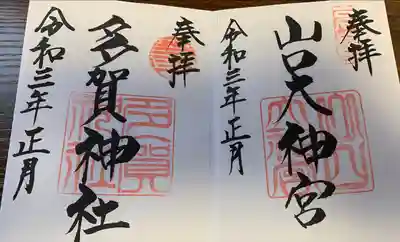 奉拝
山口大神宮
令和三年正月
奉拝
多賀神社
令和三年正月